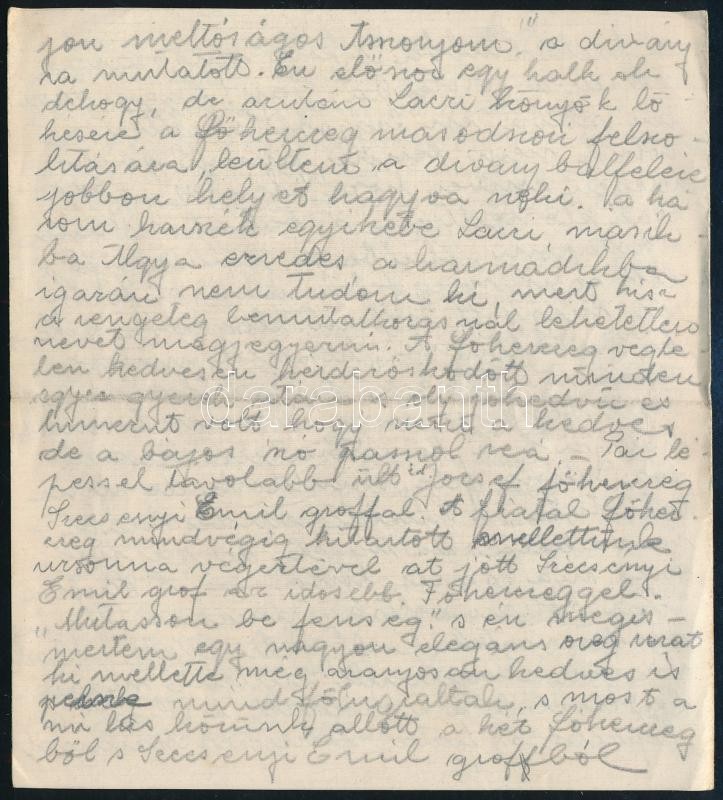 jon méltóságos Asszonyom," a divány
ra mutatott. Én először egy halk oh
dehogy, de azután Laczi könyök lö
késére a Főherceg másodszori felszó
lítására, leültem a divány balfelére
jobbon helyet hagyva neki. a há
rom karszék egyikébe Laczi másik
ba Algya ezredes a harmadikba
igazán nem tudom ki, mert hisz
a rengeteg bemutatkozásnál lehetetlen
nevet megjegyezni. A Főherceg végte
len kedvesen kérdezősködött minden
egyes gyerek után s oly jókedvű és
volt hogy a kedves
de a bájos szó passzol reá. – Pár lé
péssel távolabb ült id József főherceg
Szécsenyi Emil gróffal. A fiatal főher
ceg mindvégig kitartott mellettünk
uzsonna végeztével át jött Szécsenyi
Emil gróf az idősebb Főherceggel.
"Mutasson be fenség." s én megis-
mertem egy nagyon elegáns öreg urat
ki mellette még aranyosan kedves is
mind s most a
mi kis körünk állott a két főherceg
ből s Szécsenyi Emil grófból
darabanth